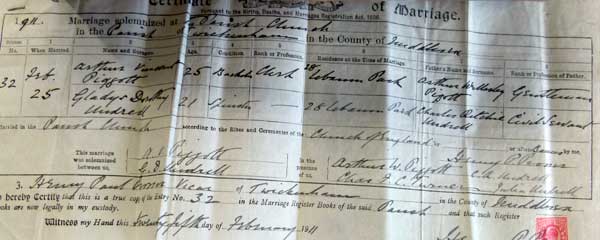 Certificate of Marriage.
Pursuant to the Births, Deaths, and Marriages Registration Act, 1836.
1911. Marriage solemnized at Parish Church
in the Parish of Twickenham in the County of Middlesex
When Married. Names and Surname. Age. Condition. Rank or Profession. Residence at the Time of Marriage. Father's Name and Surname. Rank or Profession of Father.
32 Feb. 25 Arthur Vincent Piggott 25 Bachelor Clerk 28 Lebanon Park Arthur Piggott Gentleman
Gladys Dorothy Undrell 21 Spinster 28 Lebanon Park Charles Ritchie Undrell Civil Servant
Married in the Parish Church according to the Rites and Ceremonies of the Church of England by me,
This marriage was solemnized between us, A. V. Piggott G. D. Undrell in the presence of us Arthur W. Piggott
Chas. Turner C. R. Undrell
I, Henry Paul Vicar of Twickenham in the County of Middlesex
do hereby Certify that this is a true copy of Entry No. 32 in the Marriage Register Books of the said Parish and that such Register
Books are now legally in my custody.
Witness my Hand this Twenty fifth day of February 1911